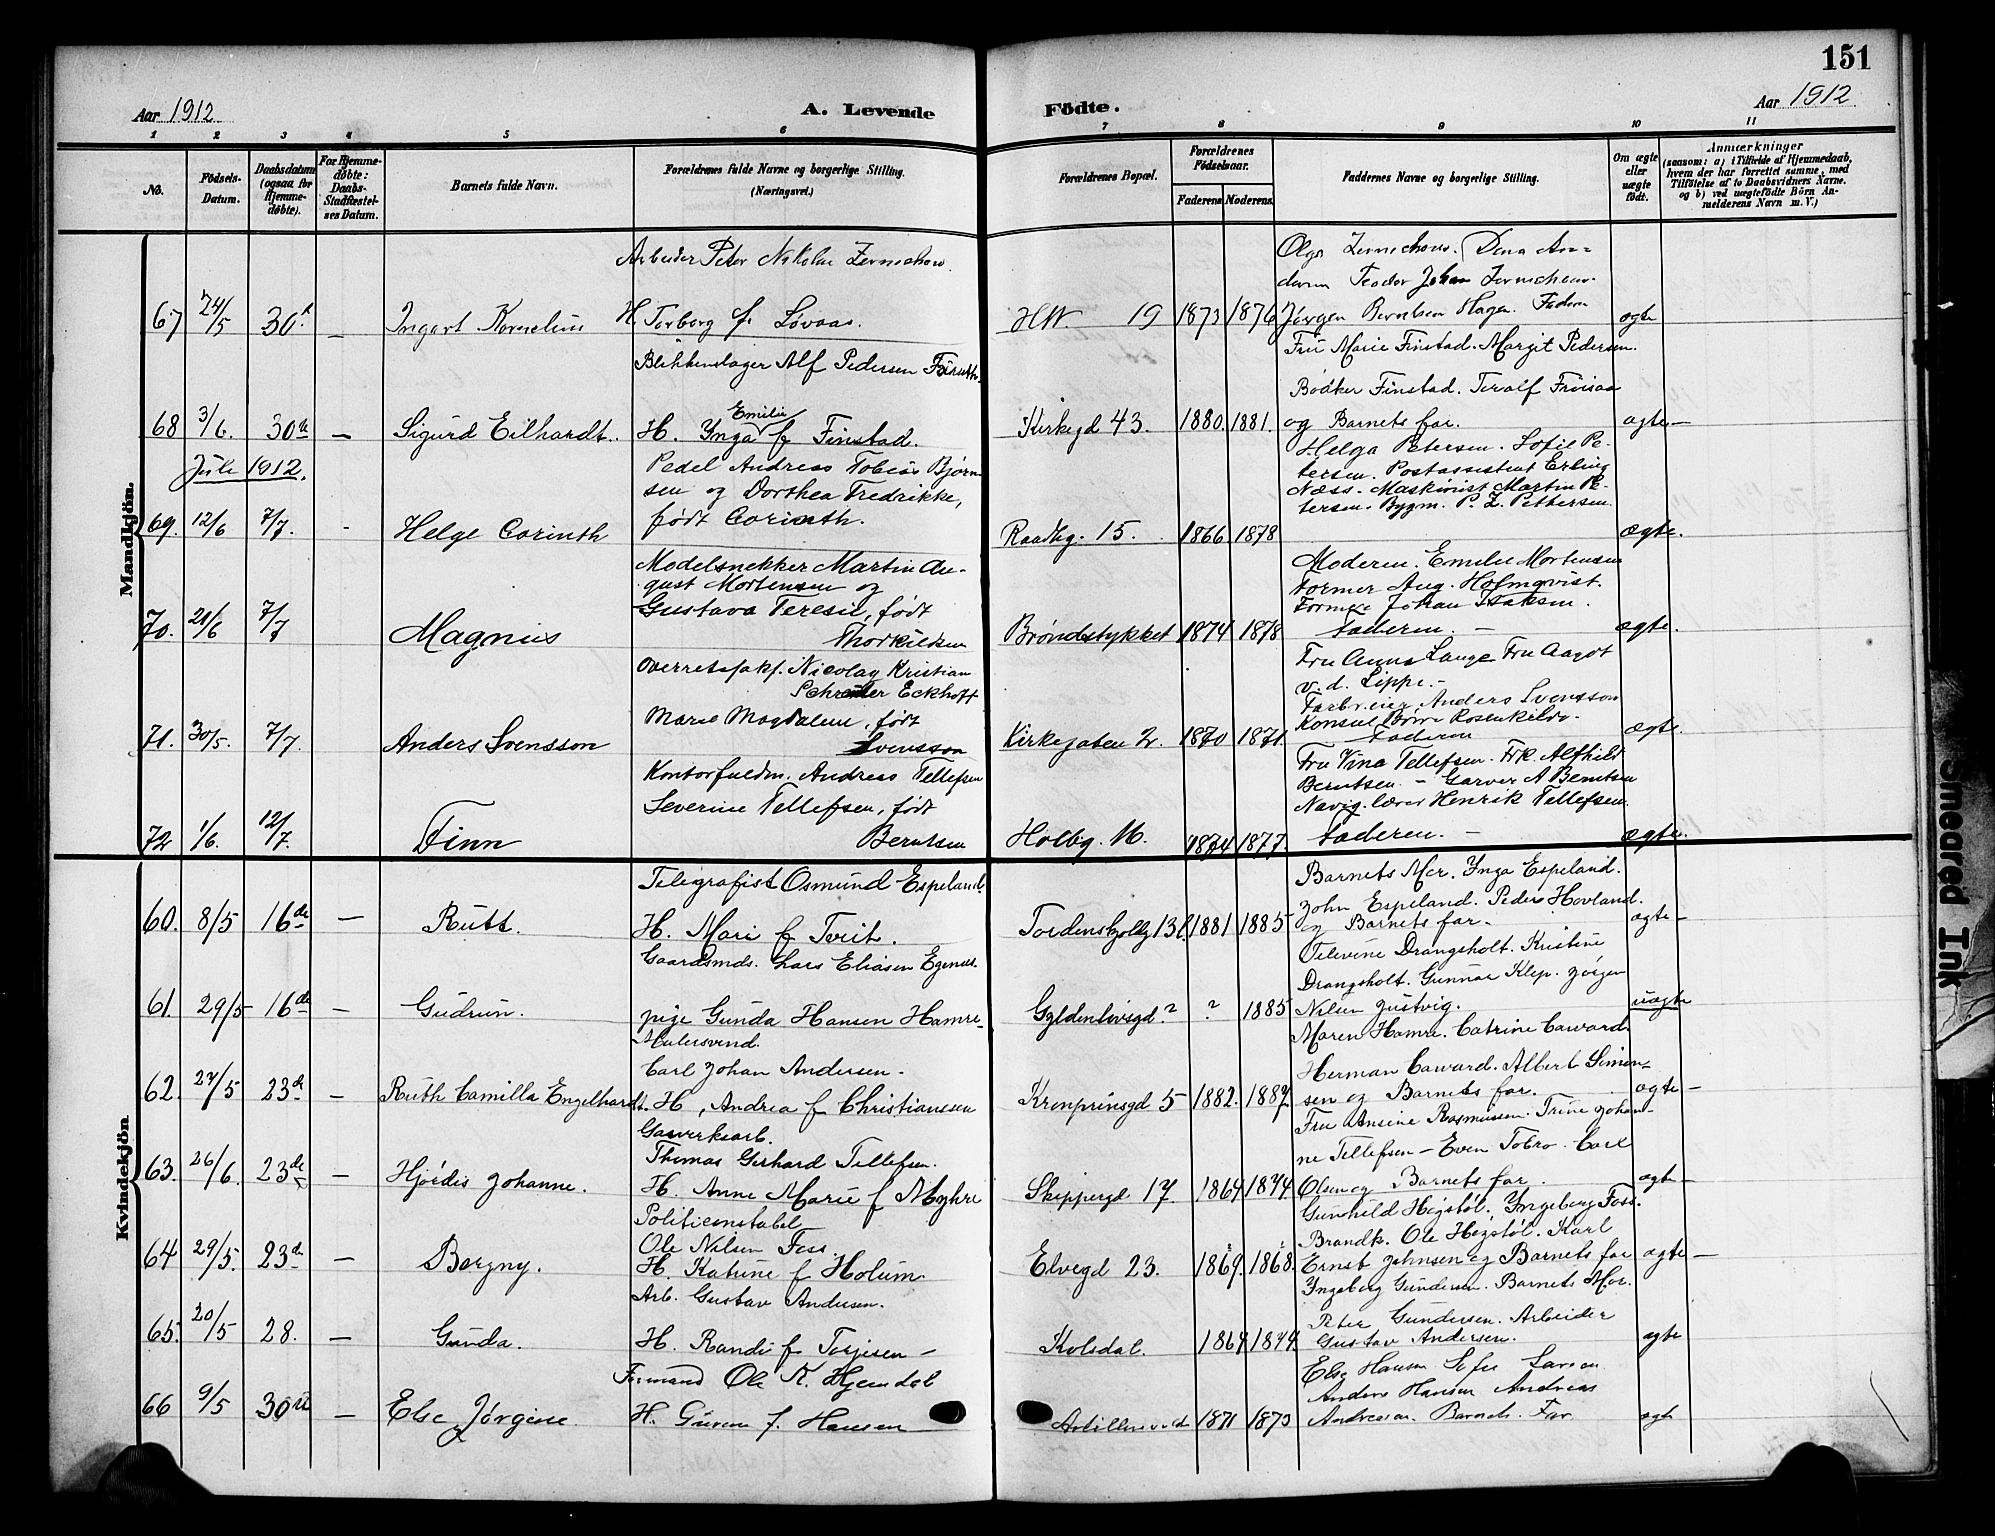 151
Aar 1912
A. Levende Födte.
Aar 1912
1 2 3 4 5 6 7 8 9 10 11
No.
Födsels-Datum.
Daabsdatum (ogsaa for Hjemme-döbte).
For Hjemme-döbte: Daabs-Stadfæstel-ses Datum.
Barnets fulde Navn.
Forældrenes fulde Navne og borgerlige Stilling. (Næringsvei.)
Forældrenes Bopæl.
Forældrenes Födselsaar.
Faderens Moderens
Faddernes Navne og borgerlige Stilling.
Om ægte eller uægte födt.
Anmærkninger
(saasom: a) i Tilfælde af Hjemmedaab,
hvem der har forrettet samme, med
Tilföielse af to Daabsvidners Navne.
og b) ved uægtefödte Börn An-
melderens Navn m. V.)
Mandkjön.
Arbeider Peter Nikolai
67 24/5 30te — Ingart Kornelius H. Torborg f. Løvaas.
H.W. 19 1873 1876
Olga Dena An-
Teodor Johan
Jørgen Berntsen Hagen. Faderen
ægte
Blikkenslager Alf Pedersen
68 3/6. 30te — Sigurd Eilhardt. H. Ynga Emilie f Finstad.
Kirkegd 43. 1880. 1881.
Fru Marie Finstad. Margit Pedersen.
Bødker Finstad. Toralf Frøisaa
og Barnets far.
ægte —
Juli 1912.
Pedel Andreas Tobias Bjørn
sen og Dorthea Fredrikke,
69. 12/6 7/7. - Helge Corinth født Corinth.
Raadhg. 15. 1866 1878
Helga Petersen. Sofie Pe-
tersen. Postassistent Erling
Næss. Maskinist Martin Pe-
tersen. Bygm. P. Z. Pettersen
ægte.
Modelsnekker Martin Au-
gust Mortensen og
Gustava Teresie, født
70. 21/6 7/7 Magnus Thorkildsen
Brøndstykket 1874 1878
Moderen. Emilie Mortensen
Former Aug. Holmqvist.
Former Johan Isaksen.
Faderen. —
ægte.
Overretssakf. Nicolay Kristian
Schreuder Eckhoff
Marie Magdalene, født
71. 30/5. 7/7. Anders Svensson Svensson
Kirkegaten 2. 1870 1871.
Fru Anna Lange Fru Aagot
v. d. Lippe. -
Anders Svensson
Konsul Børre Rosenkilde.
Faderen
ægte.
Kontorfuldm. Andreas Tellefsen
Severine Tellefsen, født
72 1/6. 12/7. Finn Berntsen
Holbg. 16. 1874 1877
Fru Vina Tellefsen. Frk. Alfhild
Berntsen. - Garver A Berntsen
Navig. lærer Henrik Tellefsen.
Faderen. —
ægte.
Kvindekjön
Telegrafist Osmund Espeland.
60. 8/5 16de — Rutt. H. Mari f Tveit.
Tordenskjoldg 13 1881 1885
Barnets Mor. Ynga Espeland.
John Espeland. Peder Hovland.
og Barnets far.
ægte —
Gaardsmds. Lars Eliasen Egenes.
61. 29/5 16de — Gudrun. pige Gunda Hansen Hamre
Gyldenløvsgd. ? ? 1885
Televine Drangsholt. Kristine
Drangsholt. Gunnar Klep. Jørgen
Nilsen Justvig.
uægte
Malersvend.
Carl Johan Andersen.
62. 27/5 23de — Ruth Camilla Engelhardt. H, Andrea f Christianssen
Kronprinsgd 5 1882. 1882.
Maren Hamre. Catrine Caward.
Herman Caward. Albert Simon-
sen og Barnets far.
ægte —
Gasverksarb.
Thomas Gerhard Tellefsen.
63. 26/6. 23de — Hjördis Johanne. H. Anne Marie f Moghre
Skippergd 17. 1864 1874
Fru Ansine Rasmussen. Trine Johan-
ne Tellefsen — Even Tobro. Carl
Olsen og Barnets far.
ægte —
Politiconstabel
Ole Nilsen Foss.
64 29/5. 23de — Borgny. H. Katrine f Holum
Elvegd 23. 1869. 1868.
Gunhild Hegstøl. Yngeborg Foss.
Brandk. Ole Hegstøl. Karl
Ernst Johnsen og Barnets far
ægte —
Arb. Gustav Andersen.
65. 20/5 28. — Gunda. H. Randi f Torjesen —
Kolsdal. 1864 1874.
Yngeborg Gundersen. Barnets Mor.
Peter Gundersen. Arbeider
Gustav Andersen.
ægte
Formand Ole K. Hjemdal
66 9/5 30te — Else Jörgine H. Guren f. Hansen
1871 1873
Else Hansen Sofie Larsen
Anders Hansen Andreas
Andreasen Barnets Far
ægte
Smeared Ink